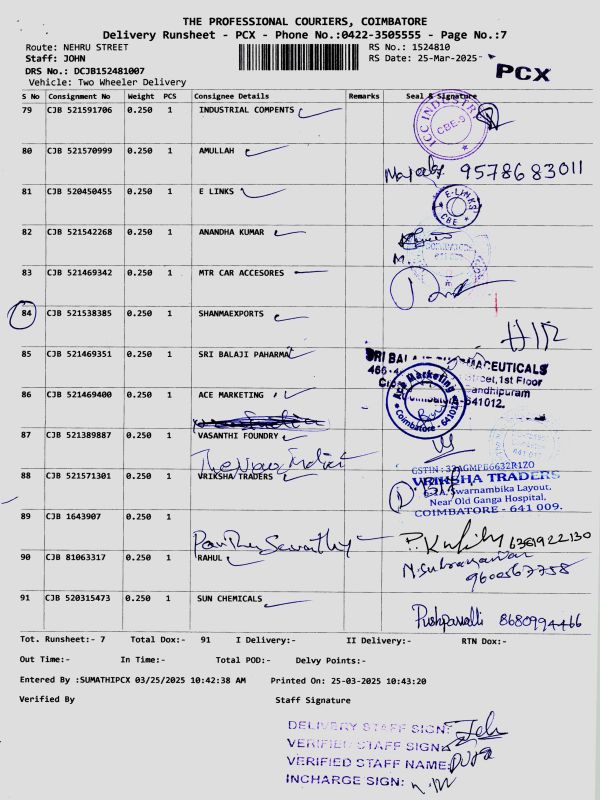 THE PROFESSIONAL COURIERS, COIMBATORE
Delivery Runsheet - PCX - Phone No.:0422-3505555 - Page No.:7
Route: NEHRU STREET RS No.: 1524810
Staff: JOHN RS Date: 25-Mar-2025
DRS No.: DCJB152481007
Vehicle: Two Wheeler Delivery
PCX
S No Consignment No Weight PCS Consignee Details Remarks Seal & Signature
79 CJB 521591706 0.250 1 INDUSTRIAL COMPENTS
ICC INDUSTRY CBE-9
80 CJB 521570999 0.250 1 AMULLAH
9578683011
81 CJB 520450455 0.250 1 E LINKS
E-LINKS CBE
82 CJB 521542268 0.250 1 ANANDHA KUMAR
83 CJB 521469342 0.250 1 MTR CAR ACCESORES
84 CJB 521538385 0.250 1 SHANMAEXPORTS
85 CJB 521469351 0.250 1 SRI BALAJI PAHARMA
SRI BALAJI PHARMACEUTICALS
Street, 1st Floor
Gandhipuram
Coimbatore-641012.
86 CJB 521469400 0.250 1 ACE MARKETING
Ace Marketing Coimbatore - 641012
87 CJB 521389887 0.250 1 VASANTHI FOUNDRY
The New India
88 CJB 521571301 0.250 1 VRIKSHA TRADERS
GSTIN : 33AGMPB6632R1ZO
VRIKSHA TRADERS
Swarnambika Layout,
Near Old Ganga Hospital,
COIMBATORE - 641 009.
89 CJB 1643907 0.250 1
90 CJB 81063317 0.250 1 RAHUL
9600567758
91 CJB 520315473 0.250 1 SUN CHEMICALS
Pushpavalli 8680994466
Tot. Runsheet:- 7 Total Dox:- 91 I Delivery:- II Delivery:- RTN Dox:-
Out Time:- In Time:- Total POD:- Delvy Points:-
Entered By :SUMATHIPCX 03/25/2025 10:42:38 AM Printed On: 25-03-2025 10:43:20
Verified By Staff Signature
DELIVERY STAFF SIGN:
VERIFIED STAFF SIGN:
VERIFIED STAFF NAME:
INCHARGE SIGN: